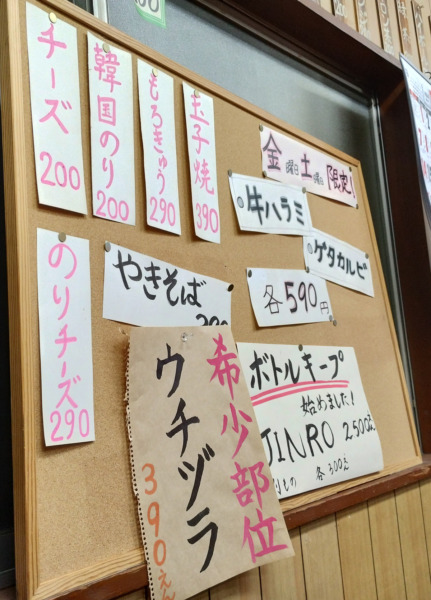 チーズ
200
韓国のり
200
もろきゅう
290
玉子焼
390
金曜日 土曜日 限定!
牛ハラミ
ゲタカルビ
各590円
のりチーズ
290
やきそば
希少部位
ウチヅラ
390えん
ボトルキープ
始めました!
JINRO 2500え
各300え